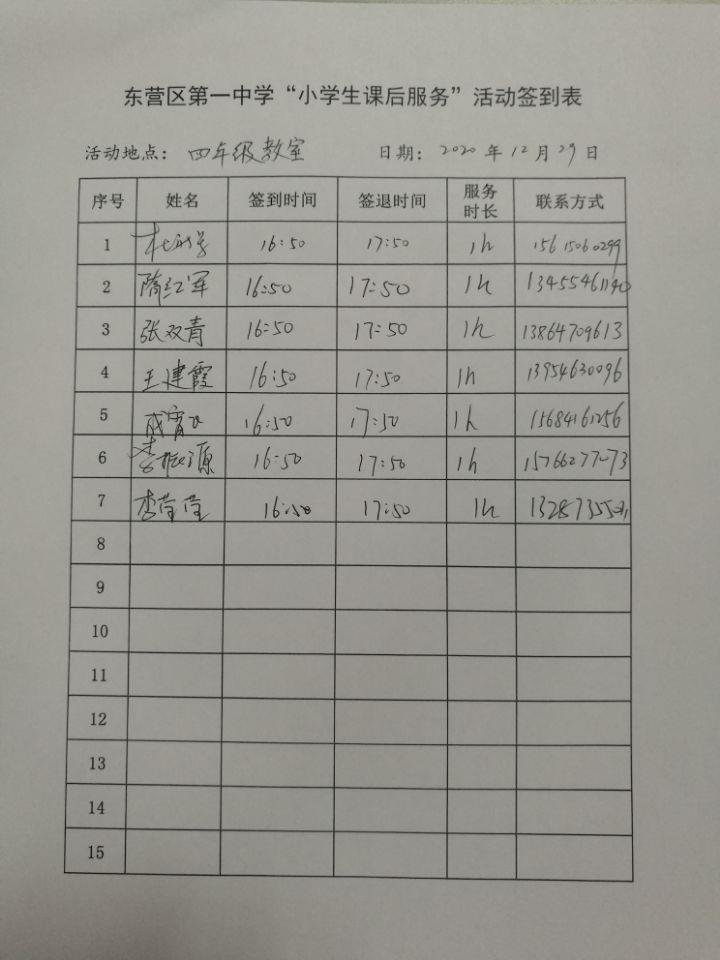 东营区第一中学“小学生课后服务”活动签到表
活动地点：四年级教室 日期：2020年12月29日
序号 姓名 签到时间 签退时间 服务时长 联系方式
1 杜 16:50 17:50 1h 15615060299
2 隋红军 16:50 17:50 1h 13455461140
3 张双青 16:50 17:50 1h 13864709613
4 王建霞 16:50 17:50 1h 13954630096
5 成 16:50 17:50 1h 15684161256
6 李 源 16:50 17:50 1h
7 李莹莹 16:50 17:50 1h
8
9
10
11
12
13
14
15